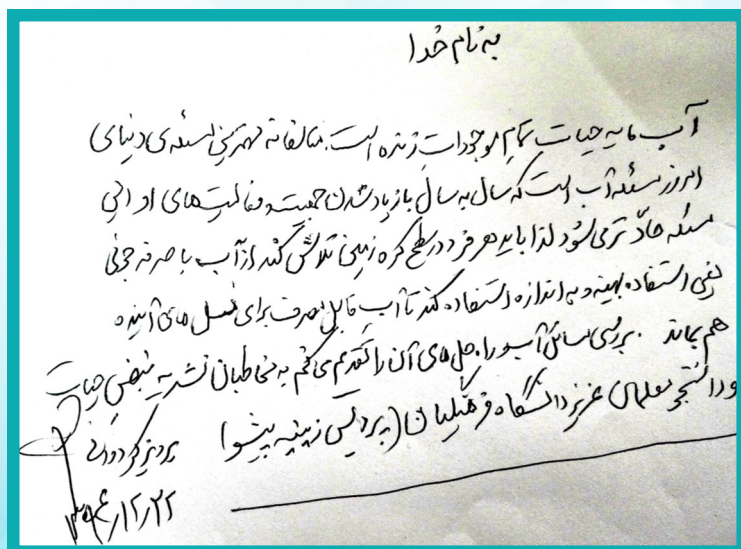 به نام خدا
آب مایه حیات تمام موجودات زنده است. متاسفانه مهمترین مسئله‌ی دنیای
امروز مسئله آب است که سال به سال با زیاد شدن جمعیت و فعالیت‌های او این
مسئله حادّتر می‌شود لذا باید هر فرد در سطح کره زمین تلاش کند از آب با صرفه جوئی
یعنی استفاده بهینه و به اندازه استفاده کند تا آب قابل مصرف برای نسل های آینده
هم بماند. بررسی مسائل آب و راه حل های آن را تقدیم می کنم به مخاطبان نشریه نبض حیات
و دانشجو معلمان عزیز دانشگاه فرهنگیان (پردیس زینبیه پیشوا)
پرویز کردوانی
۱۳۹۶/۱۲/۲۲